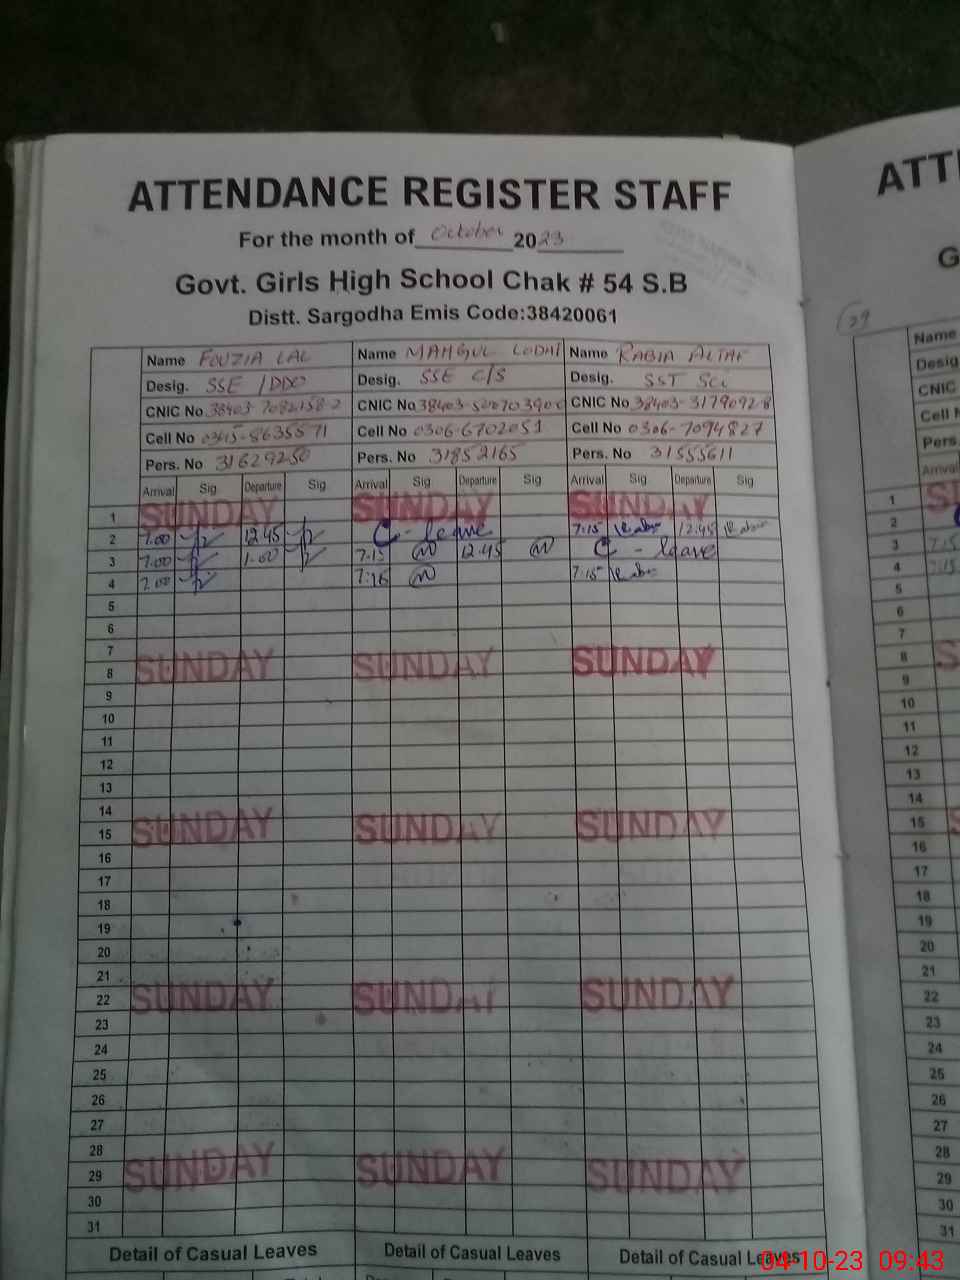 ATTENDANCE REGISTER STAFF
For the month of October 2023
Govt. Girls High School Chak # 54 S.B
Distt. Sargodha Emis Code:38420061
Name FOUZIA LAL Name MAHGUL LODHI Name RABIA ALTAF
Desig. SSE /DDO Desig. SSE C/S Desig. SST Sci
CNIC No CNIC No CNIC No 38403-3179092-8
Cell No 0345-8635571 Cell No 0306-6702051 Cell No 0306-7094827
Pers. No 31629250 Pers. No 31852165 Pers. No 31555611
Arrival Sig Departure Sig Arrival Sig Departure Sig Arrival Sig Departure Sig
1 SUNDAY SUNDAY SUNDAY
2 7.00 12.45 C - leave 7:15 12:45
3 7.00 1.00 7:15 12:45 C - leave
4 7.00 7:15 7:15
5
6
7
8 SUNDAY SUNDAY SUNDAY
9
10
11
12
13
14
15 SUNDAY SUNDAY SUNDAY
16
17
18
19
20
21
22 SUNDAY SUNDAY SUNDAY
23
24
25
26
27
28
29 SUNDAY SUNDAY SUNDAY
30
31
Detail of Casual Leaves Detail of Casual Leaves Detail of Casual Leaves
ATT
G
29
Name
Desig
CNIC
Cell N
Pers.
Arrival
1
2
3 7:15
4 7:15
5
6
7
8 S
9
10
11
12
13
14
15 S
16
17
18
19
20
21
22
23
24
25
26
27
28
29
30
31
04-10-23 09:43